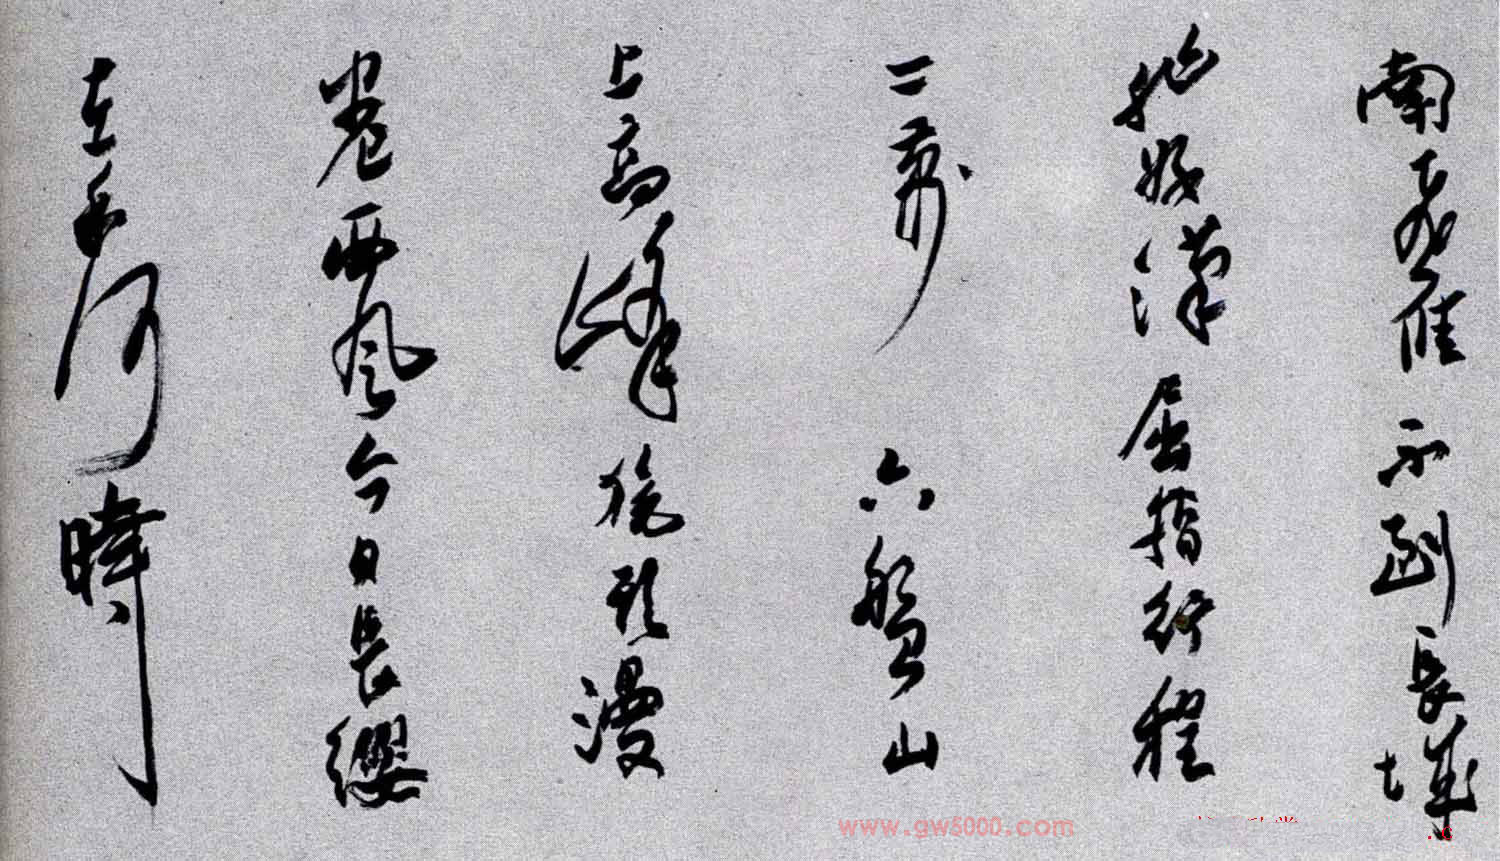 南飛雁不到長城
非好漢屈指行程
二萬 六盤山
上高峰旄頭漫
卷西風今日長纓
在手何時
www.gw5000.com